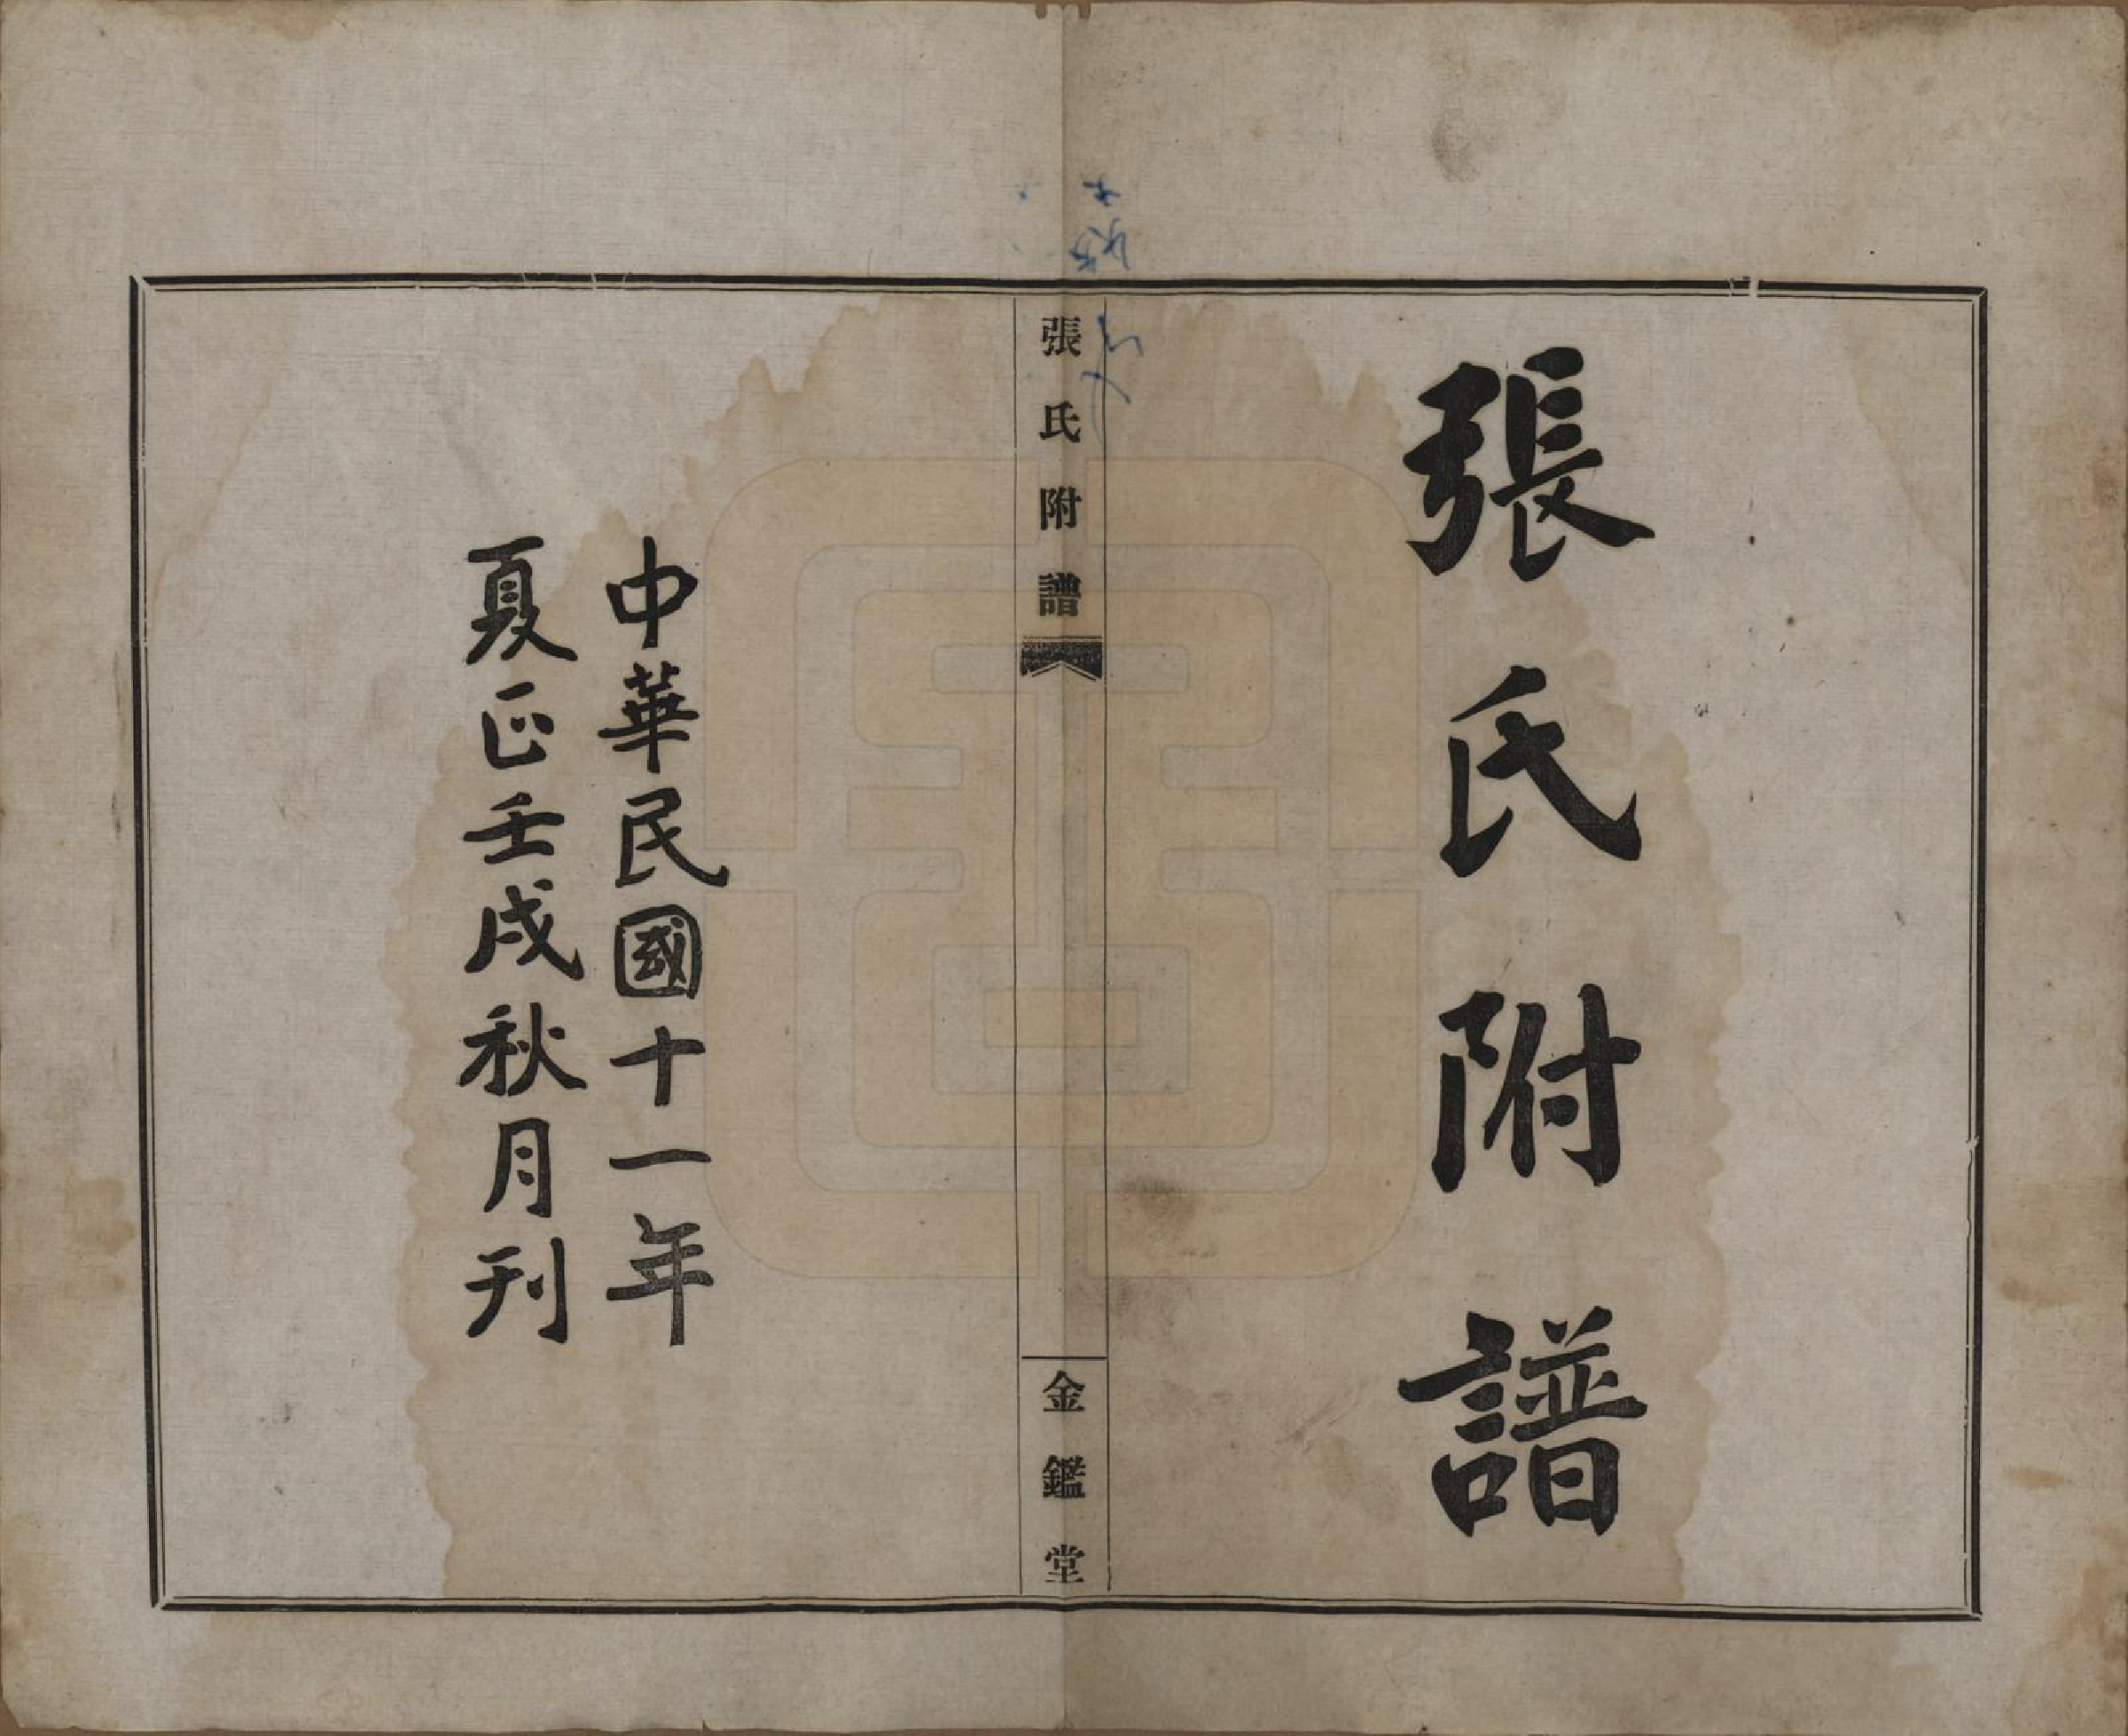 張氏附譜
張氏附譜
金鑑堂
中華民國十一年
夏正壬戌秋月刊